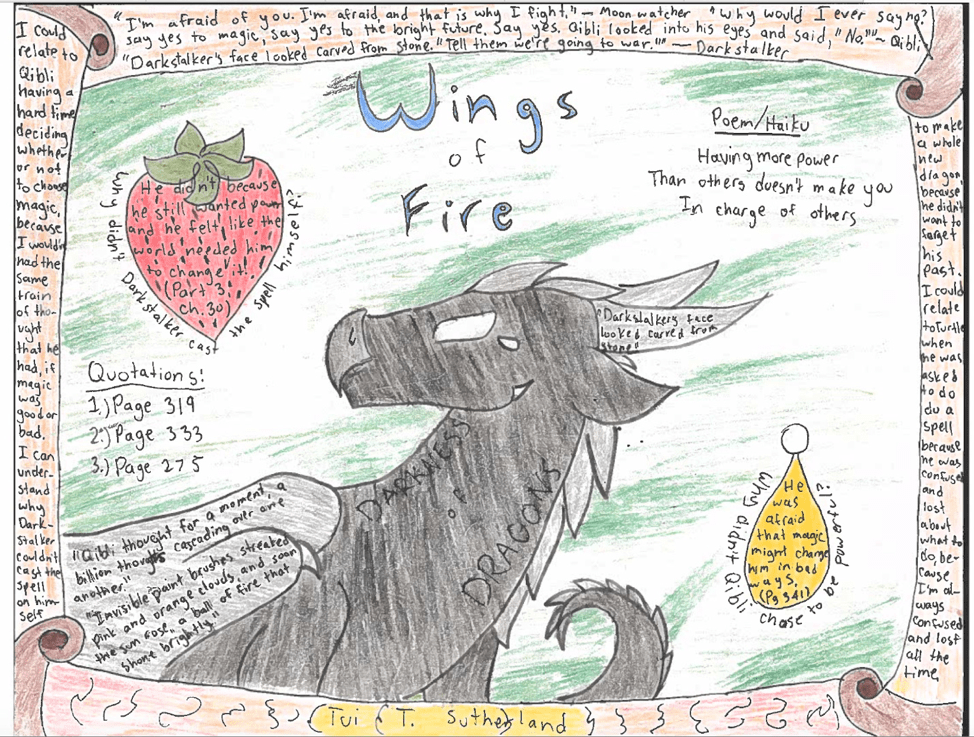 "I'm afraid of you. I'm afraid, and that is why I fight." — Moon watcher "Why would I ever say no?
say yes to magic, say yes to the bright future. Say yes. Qibli looked into his eyes and said, "No."" ~ Qibli
"Darkstalker's face looked carved from stone." "Tell them we're going to war."" — Darkstalker
I could
relate to
Qibli
having a
hard time
deciding
whether
or not
to choose
magic,
because
I would've
had the
same
train
of tho-
ught
that he
had, if
magic
was
good or
bad.
I can
under-
stand
why
Dark-
stalker
couldn't
cast the
spell
on him-
self
Wings
of
Fire
Poem/Haiku
Having more power
Than others doesn't make you
In charge of others
Why didn't Darkstalker cast the spell himself?
He didn't because
he still wanted power
and he felt like the
world needed him
to change it!
(Part 3,
Ch. 30)
Quotations:
1.) Page 319
2.) Page 333
3.) Page 275
"Darkstalkers face
looked carved from
stone"
DARKNESS
of
DRAGONS
"Qibli thought for a moment, a
billion thoughts cascading over one
another."
"Invisible paint brushes streaked
pink and orange clouds, and soon
the sun rose, a ball of fire that
shone brightly"
Why didn't Qibli chose to be powerful?
He
was
afraid
that magic
might change
him in bad
ways.
(Pg 341)
to make
a whole
new
dragon,
because
he didn't
want to
forget
his
past.
I could
relate
to Turtle
when
he was
asked
to do
du a
spell
because
he was
confused
and
lost
about
what to
do, be-
cause
I'm al-
ways
confused
and lost
all the
time.
Tui T. Sutherland